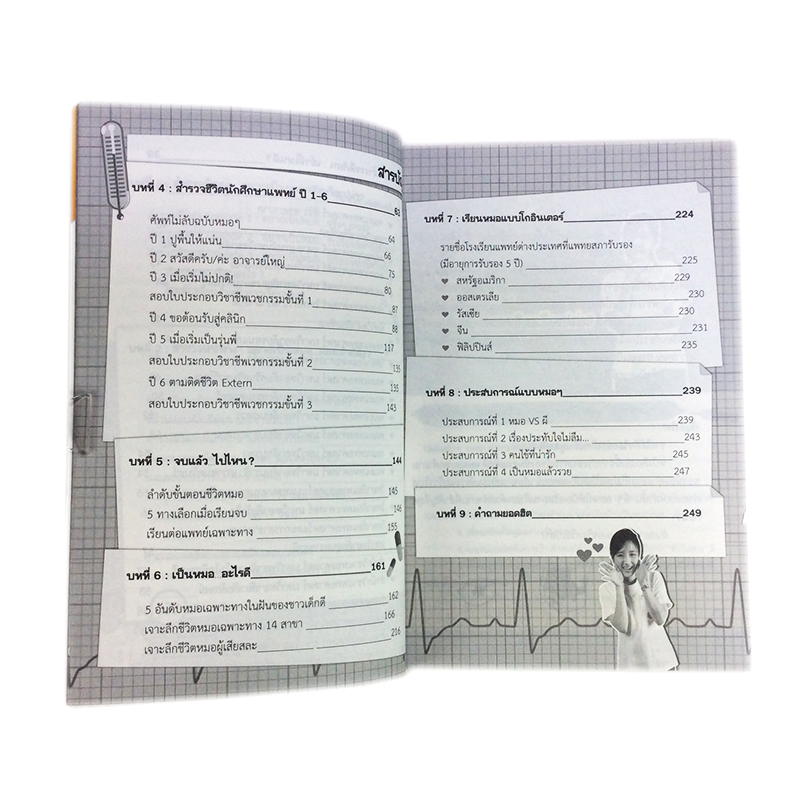 สารบัญ
บทที่ 4 : สำรวจชีวิตนักศึกษาแพทย์ ปี 1-6 63
ศัพท์ไม่ลับฉบับหมอๆ 64
ปี 1 ปูพื้นให้แน่น 66
ปี 2 สวัสดีครับ/ค่ะ อาจารย์ใหญ่ 75
ปี 3 เมื่อเริ่มไม่ปกติ! 80
สอบใบประกอบวิชาชีพเวชกรรมขั้นที่ 1 87
ปี 4 ขอต้อนรับสู่คลินิก 88
ปี 5 เมื่อเริ่มเป็นรุ่นพี่ 117
สอบใบประกอบวิชาชีพเวชกรรมขั้นที่ 2 135
ปี 6 ตามติดชีวิต Extern 135
สอบใบประกอบวิชาชีพเวชกรรมขั้นที่ 3 143
บทที่ 5 : จบแล้ว ไปไหน ? 144
ลำดับขั้นตอนชีวิตหมอ 145
5 ทางเลือกเมื่อเรียนจบ 146
เรียนต่อแพทย์เฉพาะทาง 155
บทที่ 6 : เป็นหมอ อะไรดี 161
5 อันดับหมอเฉพาะทางในฝันของชาวเด็กดี 162
เจาะลึกชีวิตหมอเฉพาะทาง 14 สาขา 166
เจาะลึกชีวิตหมอผู้เสียสละ 216
บทที่ 7 : เรียนหมอแบบโกอินเตอร์ 224
รายชื่อโรงเรียนแพทย์ต่างประเทศที่แพทยสภารับรอง
(มีอายุการรับรอง 5 ปี) 225
สหรัฐอเมริกา 229
ออสเตรเลีย 230
รัสเซีย 230
จีน 231
ฟิลิปปินส์ 235
บทที่ 8 : ประสบการณ์แบบหมอๆ 239
ประสบการณ์ที่ 1 หมอ VS ผี 239
ประสบการณ์ที่ 2 เรื่องประทับใจไม่ลืม... 243
ประสบการณ์ที่ 3 คนไข้ที่น่ารัก 245
ประสบการณ์ที่ 4 เป็นหมอแล้วรวย 247
บทที่ 9 : คำถามยอดฮิต 249